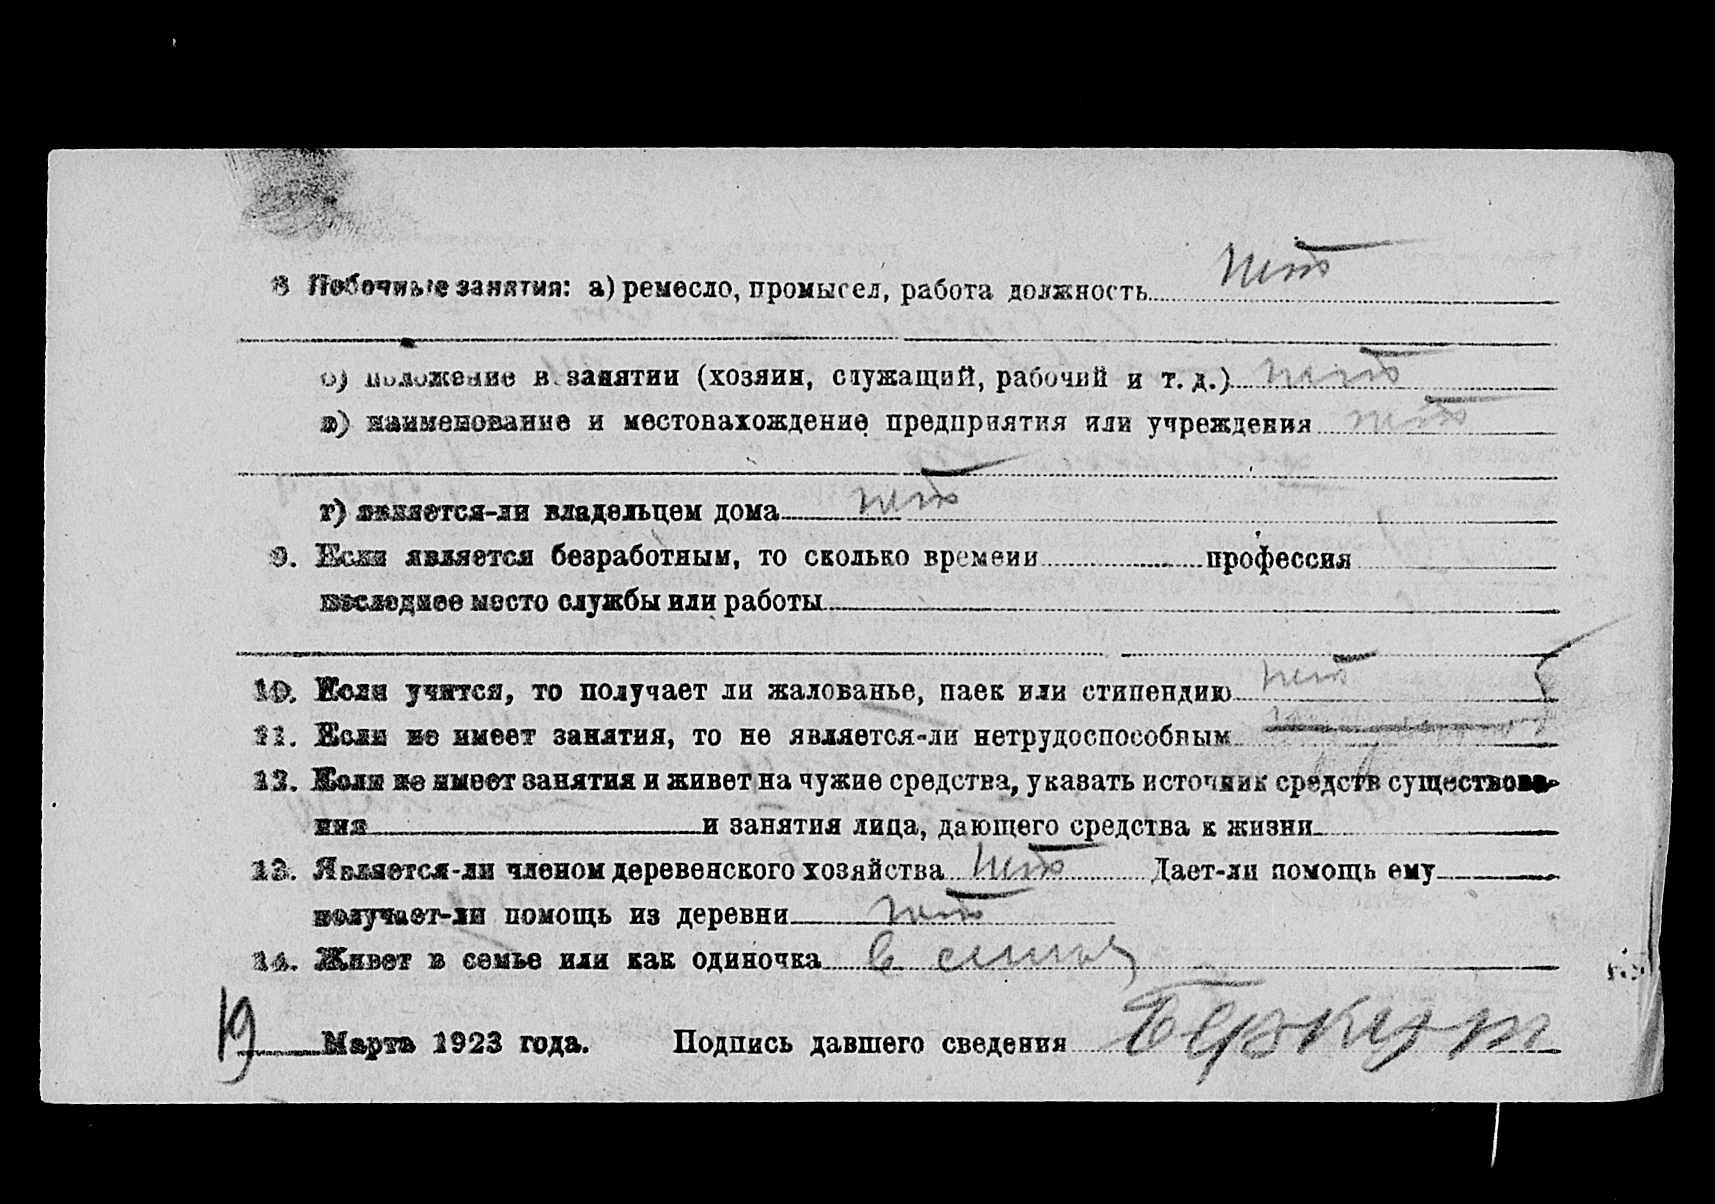 8 Побочные занятия: а) ремесло, промысел, работа должность нет
б) положение в занятии (хозяин, служащий, рабочий и т. д.) нет
в) наименование и местонахождение предприятия или учреждения нет
г) является-ли владельцем дома нет
9. Если является безработным, то сколько времени профессия
последнее место службы или работы
10. Если учится, то получает ли жалованье, паек или стипендию нет
11. Если не имеет занятия, то не является-ли нетрудоспособным
12. Если не имеет занятия и живет на чужие средства, указать источник средств существова-
ния и занятия лица, дающего средства к жизни
13. Является-ли членом деревенского хозяйства нет Дает-ли помощь ему
получает-ли помощь из деревни нет
14. Живет в семье или как одиночка в семье
19 Марта 1923 года. Подпись давшего сведения Беркут